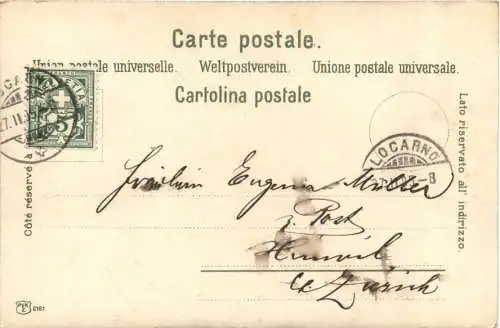 Carte postale.
Union postale universelle. Weltpostverein. Unione postale universale.
Cartolina postale
LOCARNO
LOCARNO
Fräulein Eugenia Müller
z. Post
Hinwil
Ct. Zürich
Côté réservé
Lato riservato all' indirizzo.